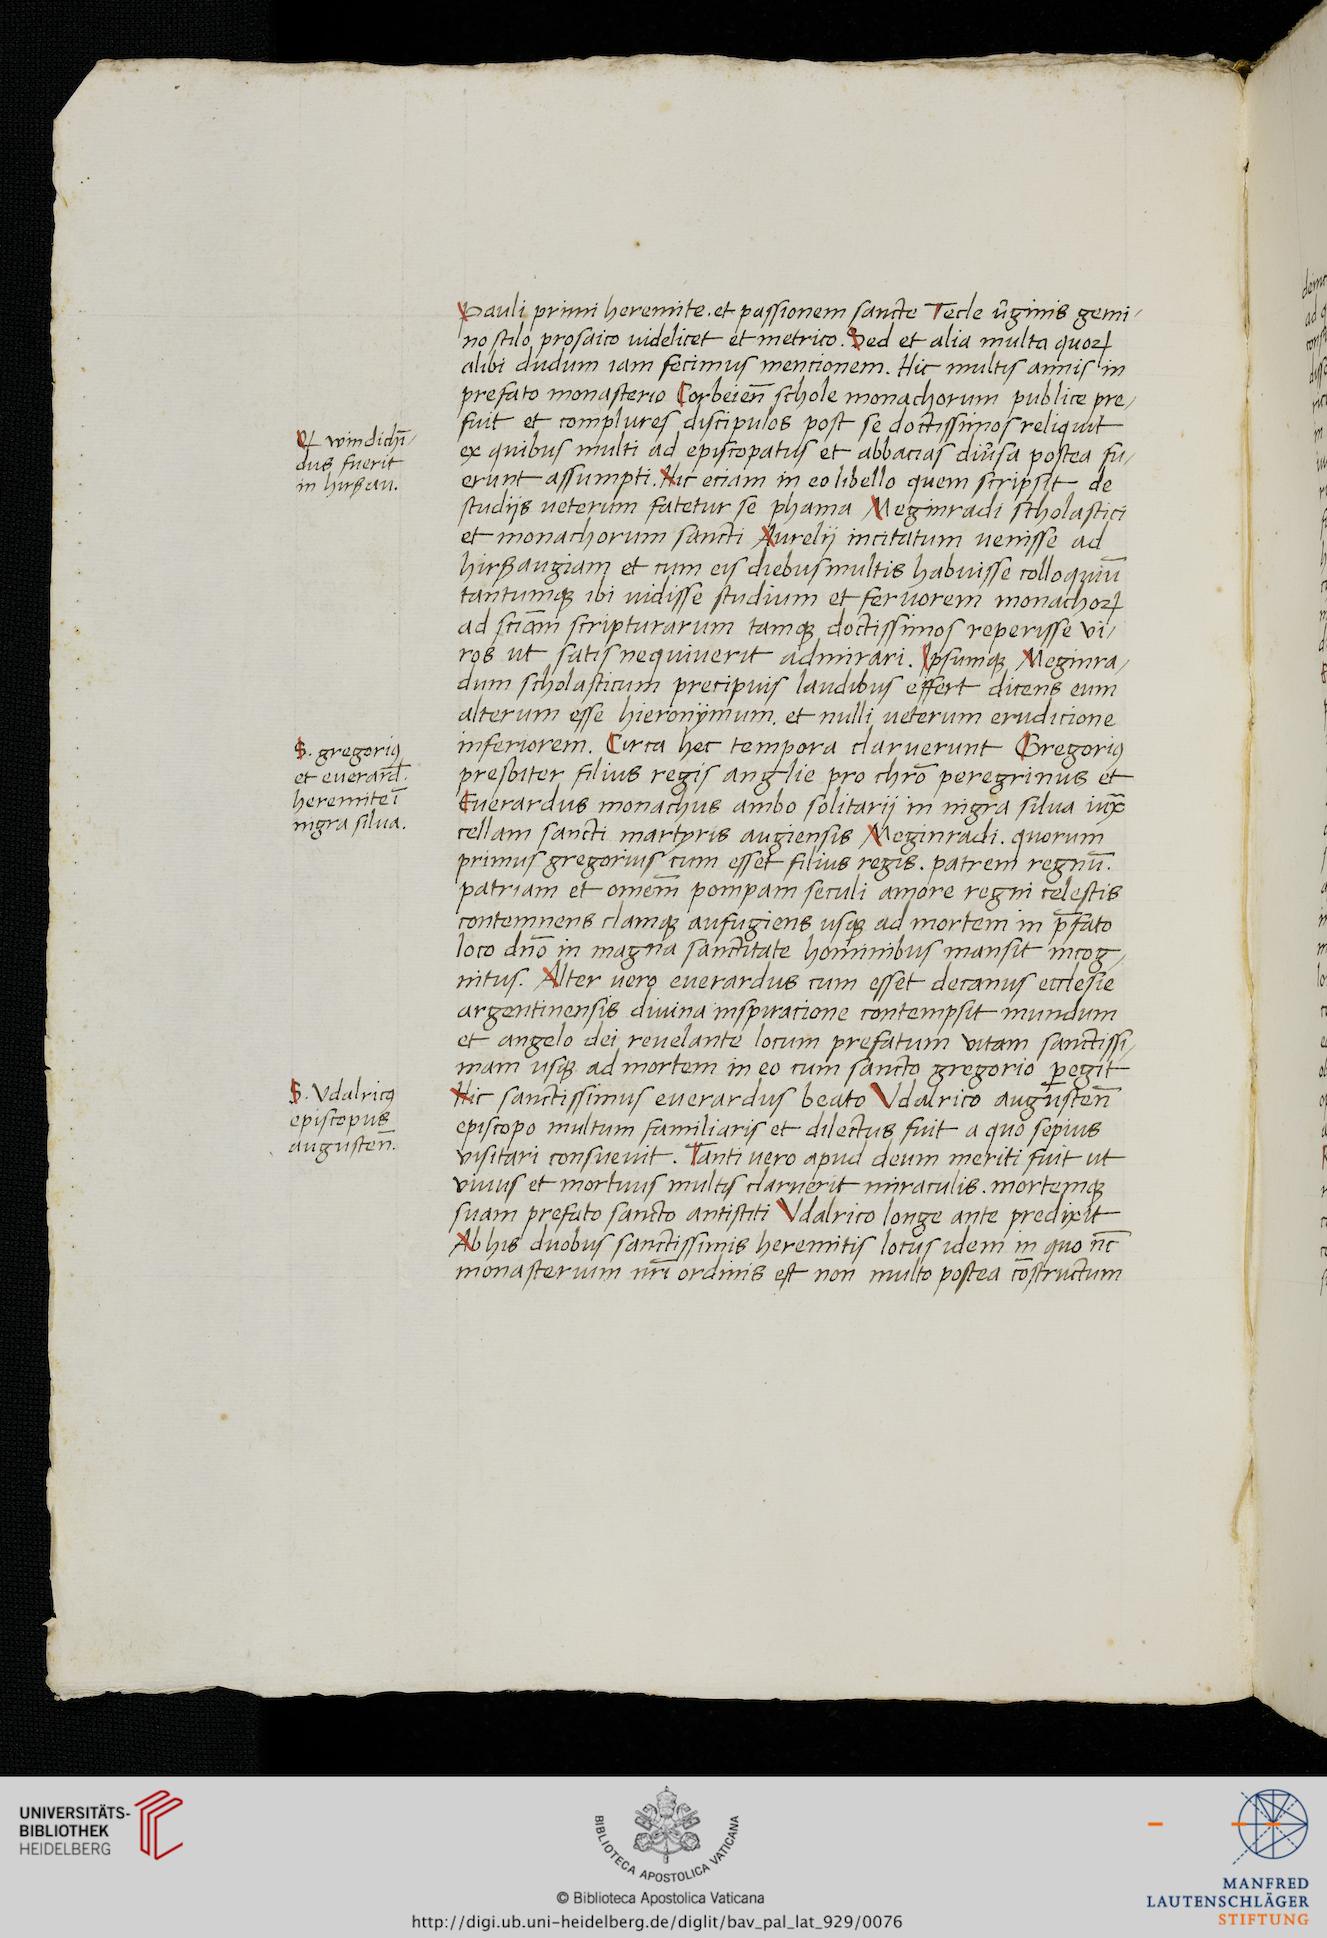 Pauli primi heremite. et passionem sancte Tecle ũginis gemi/
no stilo prosaico uidelicet et metrico. Sed et alia multa quoꝝ
alibi dudum iam fecimus mencionem. Hic multis annis in
prefato monasterio Corbeien̄ schole monachorum publice pre/
fuit et complures discipulos post se doctissimos reliquit
ex quibus multi ad episcopatus et abbacias diũsa postea fu/
erunt assumpti. Hic eciam in eo libello quem scripsit de
studijs ueterum fatetur se phama Meginradi scholastici
et monachorum sancti Aurelij incitatum uenisse ad
hirßaugiam et cum eis diebus multis habuisse colloquiū
tantumqꝫ ibi uidisse studium et feruorem monachoꝝ
ad sciam̄ scripturarum tamqꝫ doctissimos reperisse vi/
ros ut satis nequiuerit admirari. Ipsumqꝫ Meginra/
dum scholasticum precipuis laudibus effert dicens eum
alterum esse hieronÿmum. et nulli ueterum erudicione
inferiorem. Circa hec tempora claruerunt Gregoriꝰ
presbiter filius regis anglie pro chrō peregrinus et
Euerardus monachus ambo solitarij in nigra silua iux̄
cellam sancti martyris augiensis Meginradi. quorum
primus gregorius cum esset filius regis. patrem regnū.
patriam et omem̄ pompam seculi amore regni celestis
contemnens clamqꝫ aufugiens usqꝫ ad mortem in p̄fato
loco dno͞ in magna sanctitate hominibus mansit incog/
nitus. Alter uero euerardus cum esset decanus ecclesie
argentinensis diuina inspiracione contempsit mundum
et angelo dei reuelante locum prefatum vitam sanctissi/
mam usqꝫ ad mortem in eo cum sancto gregorio ꝑegit
Hic sanctissimus euerardus beato Vdalrico augusten̄
episcopo multum familiaris et dilectus fuit a quo sepius
visitari consueuit. Tanti uero apud deum meriti fuit ut
viuus et mortuus multis claruerit miraculis. mortemqꝫ
suam prefato sancto antistiti Vdalrico longe ante predixit
Ab his duobus sanctissimis heremitis locus idem in quo nc̄
monasterium nrī ordinis est non multo postea cōstructum
windichī/
dus fuerit
in hirßau.
S. gregoriꝰ
et euerard̄.
heremite ī
nigra silua.
S. Vdalricꝰ
episcopus
augusten̄.
UNIVERSITÄTS-
BIBLIOTHEK
HEIDELBERG
BIBLIOTECA APOSTOLICA VATICANA
© Biblioteca Apostolica Vaticana
http://digi.ub.uni-heidelberg.de/diglit/bav_pal_lat_929/0076
MANFRED
LAUTENSCHLÄGER
STIFTUNG